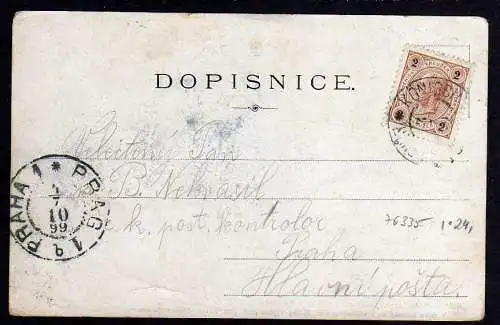 DOPISNICE.
2 2
2 2
Velectěný Pán
B. Nekvasil
c. k. post. kontrolor
Praha
Hlavní pošta.
76335
PRAHA 1 * PRAG 1
4
10
99